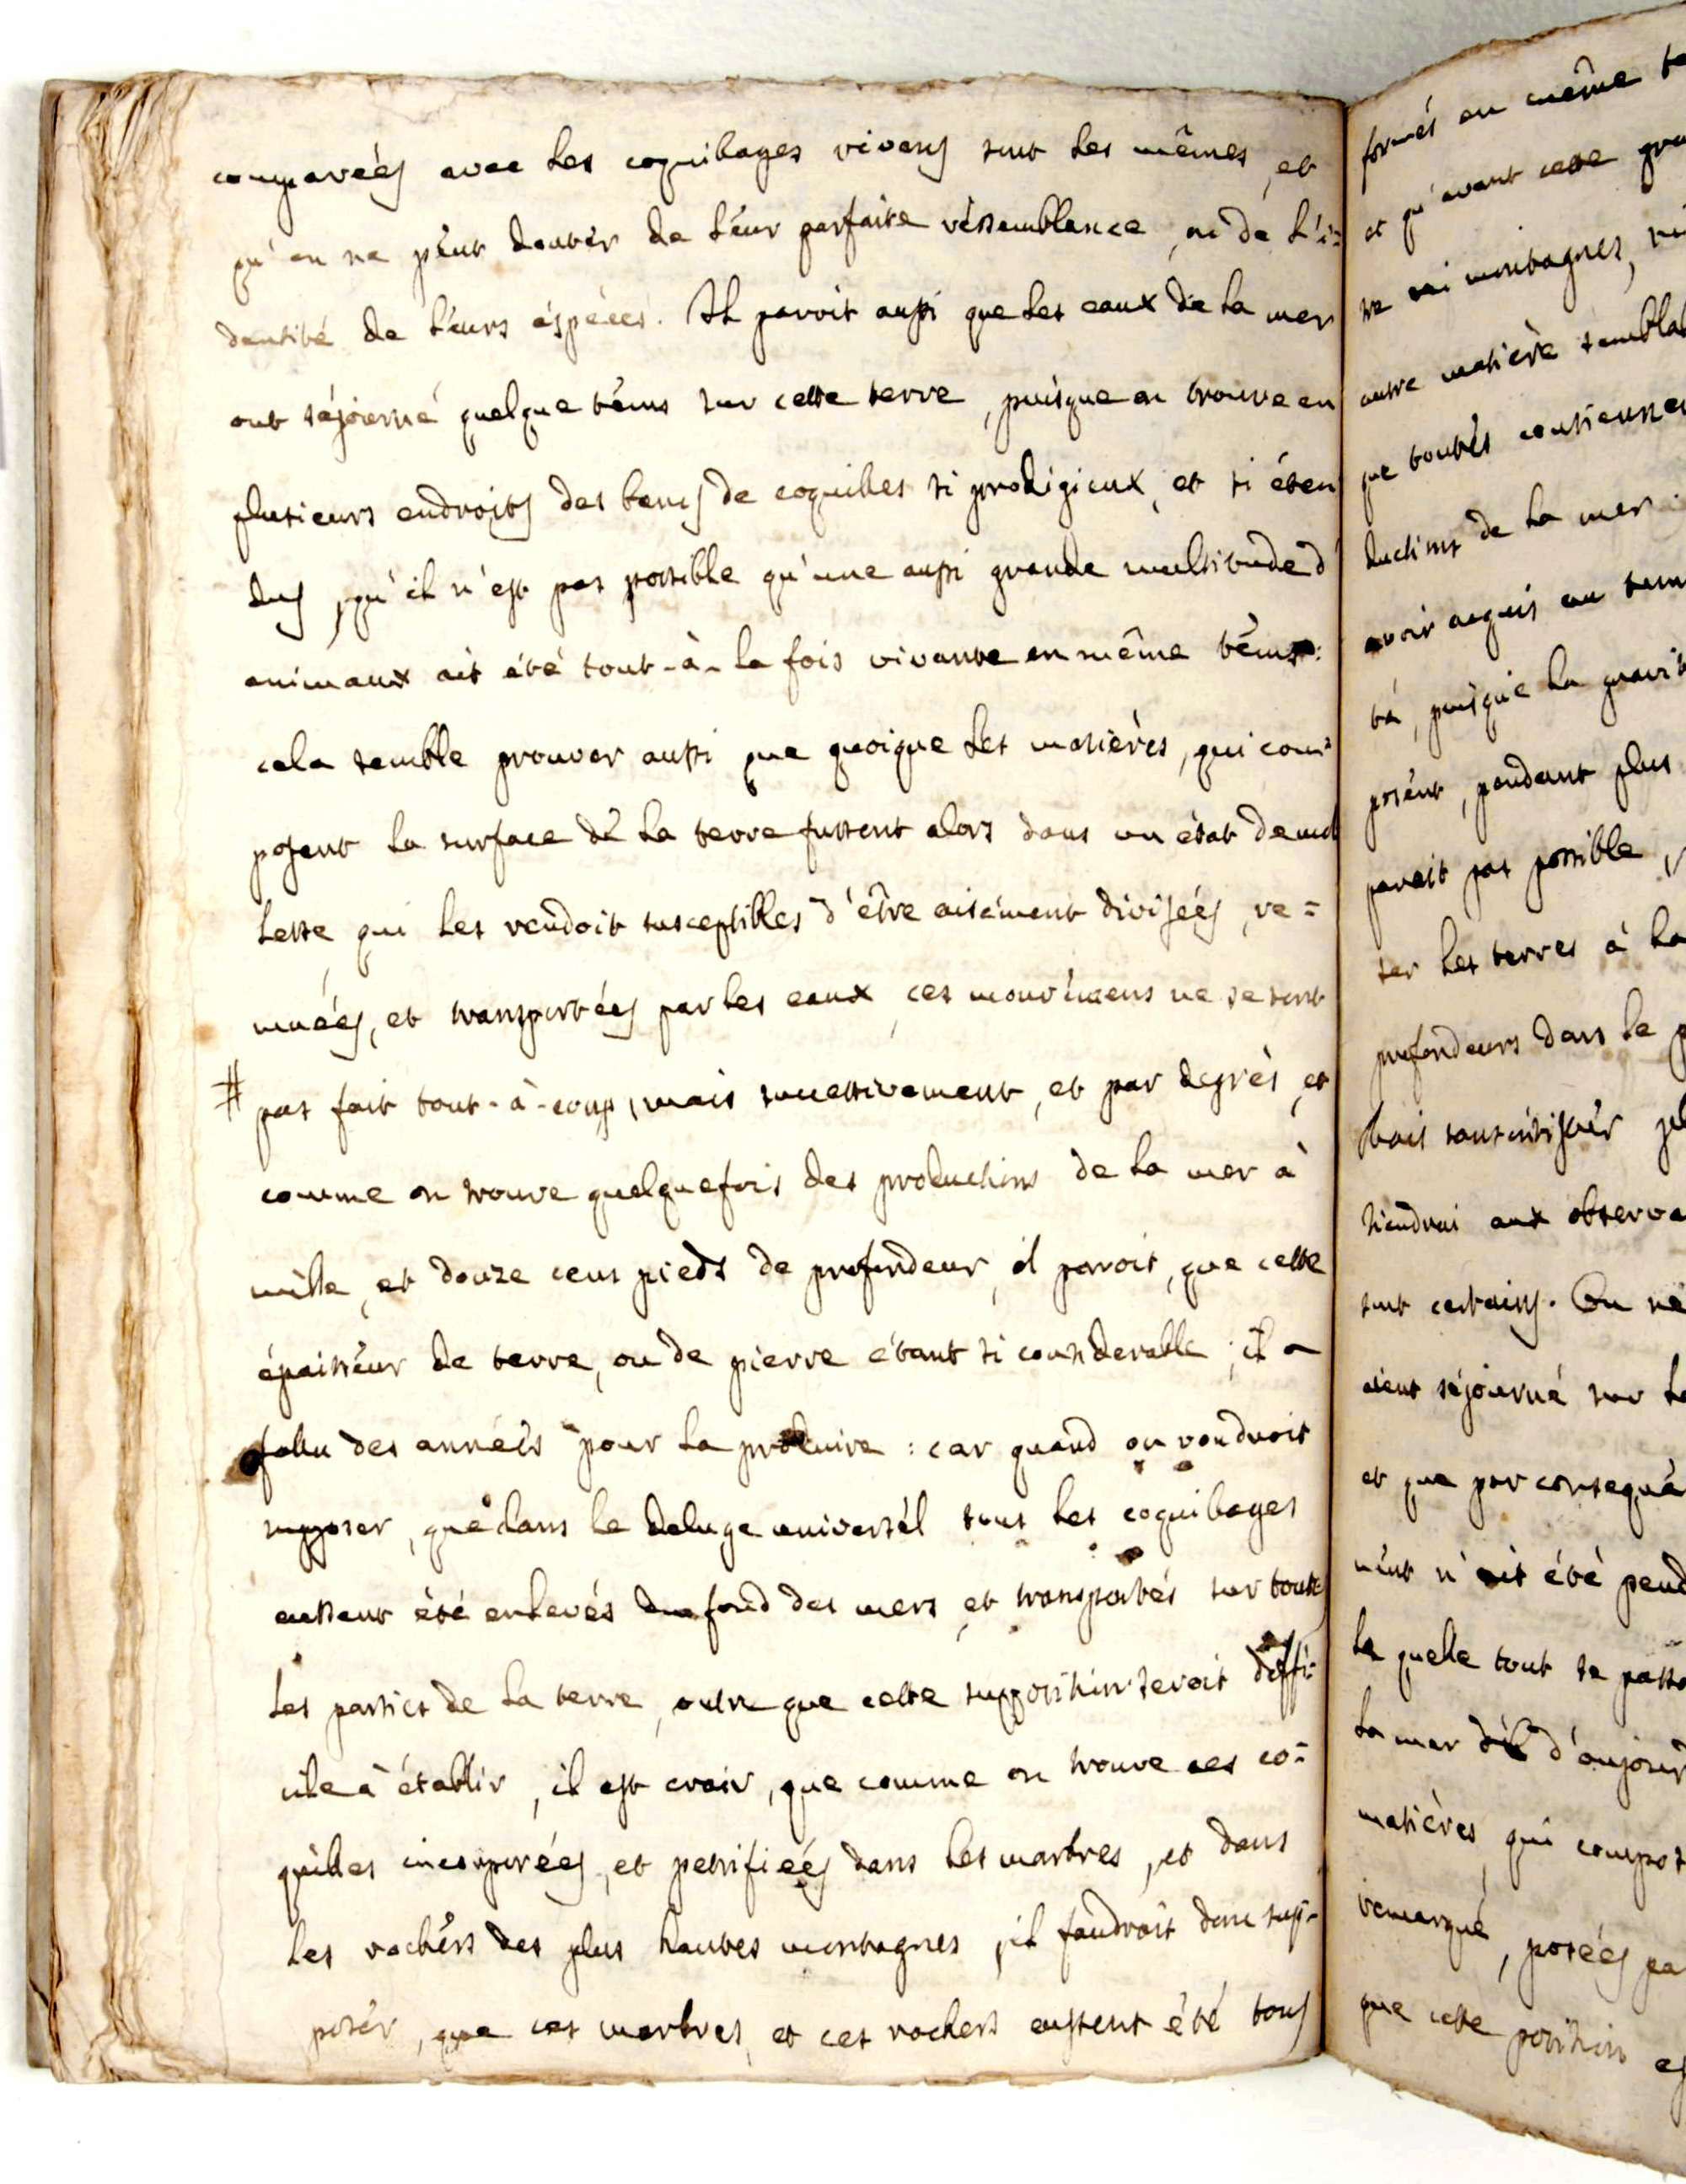 comparéés avec les coquillages vivans sont les mêmes, et
qu'on ne péut doutér de léur parfaite réssemblance, ni dé l'i=
dentité de léurs éspéces. Il paroit aussi que les eaux de la mer
ont séjourné quelque téms sur cette terre, puisque on trouve en
plusieurs endroits des bancs de coquilles si prodigieux, et si éten
dus, qu'il n'est pas possible qu'une aussi grande multitude d'
animaux ait été tout-à-la fois vivante en même téms:
cela semble prouver aussi que quoique les matières, qui com=
posent la surface dé la terre fussent alors dans un état de mol
lesse qui les rendoit susceptibles d'être aisément divisées, re=
muéés, et transportéés par les eaux, ces mouvémens ne se sont
# pas fait tout-à-coup, mais successivement, et par degrés, et
comme on trouve quelquefois des productions de la mer à
mille, et douze cens pieds de profondeur, il paroit, que cette
épaisséur de terre, ou de pierre étant si considerable, il a
fallu des annéés pour la produire : car quand on voudroit
supposer, que dans le deluge universél tous les coquillages
eussent été enlevés du fond des mers, et transportés sur toute
les parties de la terre, outre que cette supposition seroit diffi=
cile à établir, il est crair, que comme on trouve ces co=
quilles incorporéés, et petrifiéés dans les marbres, et dans
les rochérs des plus hautes montagnes, il faudroit donc sup=
posér, que ces marbres, et ces rochers eussent été tous
formés en même te
et qu'avant cette gra
tre ni montagnes, ni
autre matière semblab
que toutés contiennen
ductions de la mer
avoir acquis au
té, puisqu'e la gravit
posént, pendant plus
paroit pas possible,
ser les terres à la
profondeurs dans le p
mais sans
tiendrai aux observa
sont certains. On ne
aient séjourné sur la
et que par consequé
mént n'ait été pend
la quelle tout se passo
la mer d'aujourd
matières, qui compos
remarqué, poséés pa
que cette position es